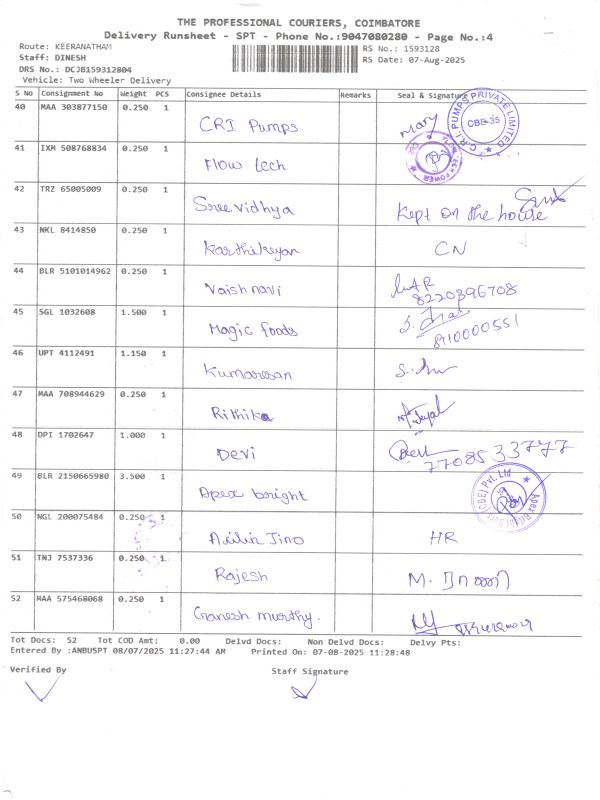 THE PROFESSIONAL COURIERS, COIMBATORE
Delivery Runsheet - SPT - Phone No.:9047080280 - Page No.:4
Route: KEERANATHAM RS No.: 1593128
Staff: DINESH RS Date: 07-Aug-2025
DRS No.: DCJB159312804
Vehicle: Two Wheeler Delivery
S No Consignment No Weight PCS Consignee Details Remarks Seal & Signature
40 MAA 303877150 0.250 1 CRI Pumps Mary C.R.I. PUMPS PRIVATE LIMITED CBE-35
41 IXM 508768834 0.250 1 Flow tech
42 TRZ 65005009 0.250 1 Sree vidhya Kept on the house
43 NKL 8414850 0.250 1 Karthikeyan CN
44 BLR 5101014962 0.250 1 Vaishnavi 8220396708
45 SGL 1032608 1.500 1 Magic foods 8110000551
46 UPT 4112491 1.150 1 Kumaresan
47 MAA 708944629 0.250 1 Rithika
48 DPI 1702647 1.000 1 Devi 7708533777
49 BLR 2150665980 3.500 1 Apex bright
50 NGL 200075484 0.250 1 Jino HR
51 TNJ 7537336 0.250 1 Rajesh M.
52 MAA 575468068 0.250 1 Ganesh murthy.
Tot Docs: 52 Tot COD Amt: 0.00 Delvd Docs: Non Delvd Docs: Delvy Pts:
Entered By :ANBUSPT 08/07/2025 11:27:44 AM Printed On: 07-08-2025 11:28:48
Verified By Staff Signature